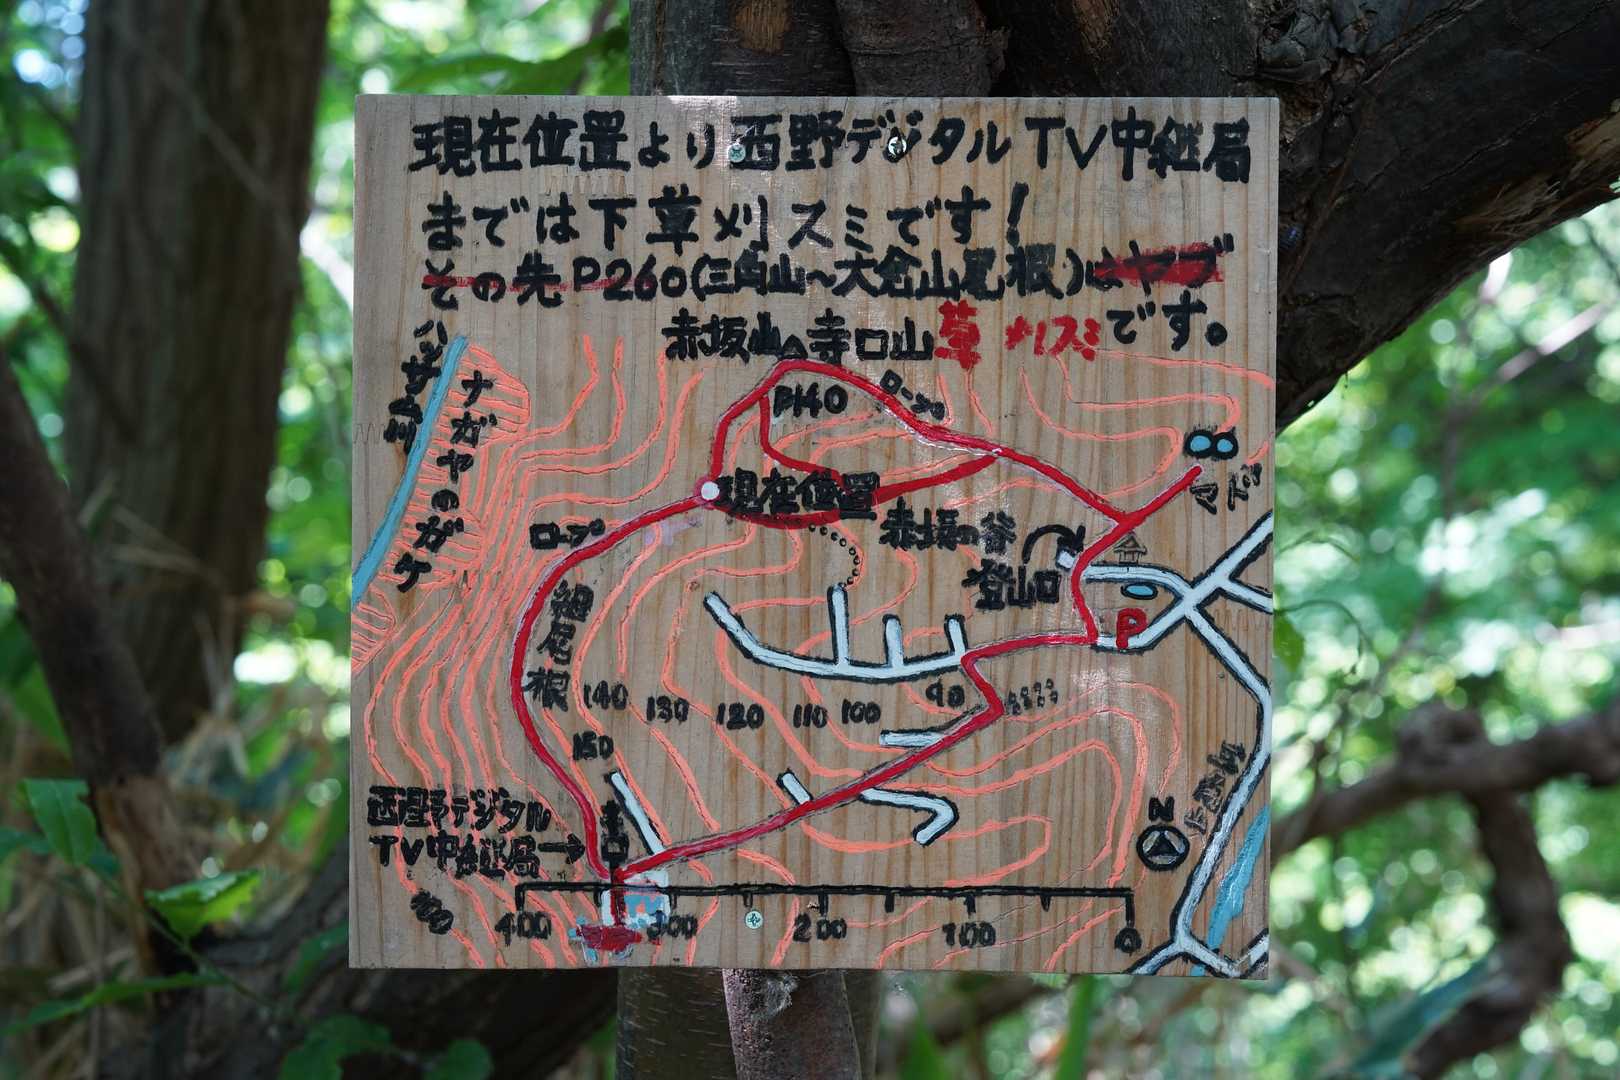 現在位置より西野デジタルTV中継局
までは下草刈スミです!
その先P260(三角山〜大倉山尾根)はヤブ
赤坂山へ寺口山草刈スミです。
P140
ロープ
ナガヤのガケ
現在位置
マド
ロープ
赤坂の谷
登山口
P
細尾根
140 130 120 110 100 90
150
西野デジタル
TV中継局→
N
TV
100
400 300 200 100 0